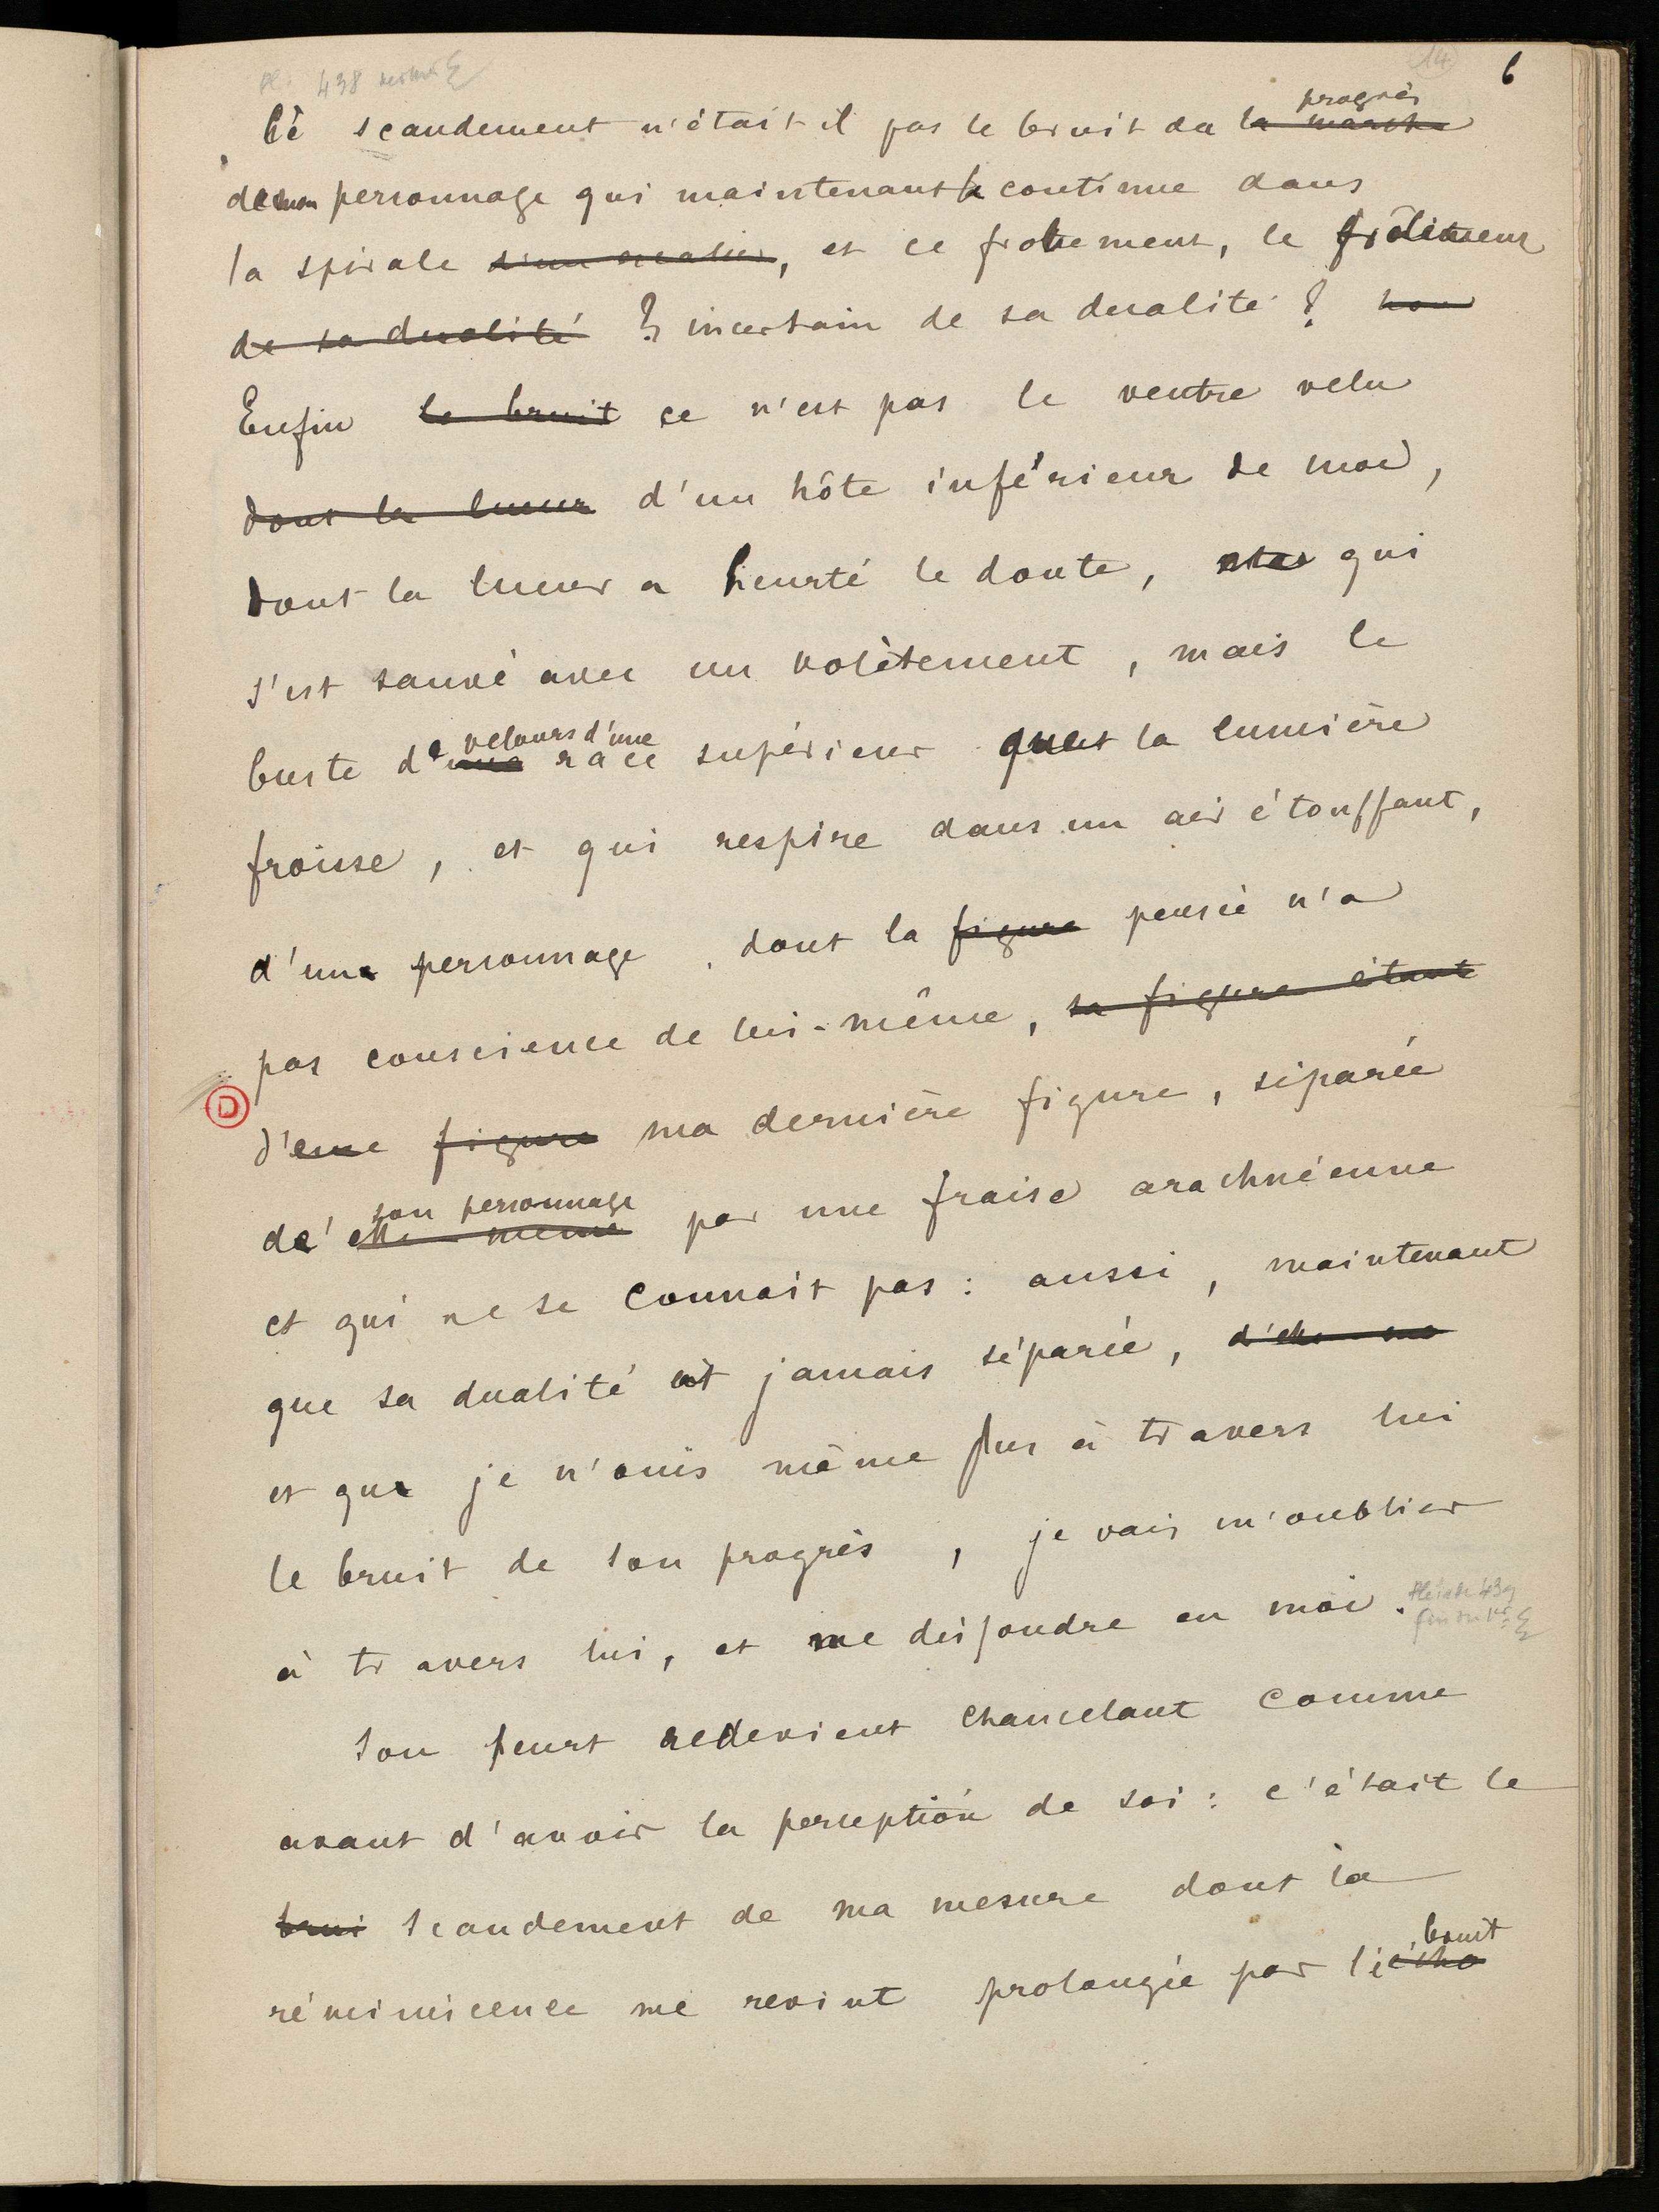 14
6
438
progrès
Ce scandement n'était il pas le bruit du la marche
de mon personnage qui maintenant le continue dans
la spirale d'un escalier, et ce frolement, le frôlement
de sa dualité incertain de sa dualité ? non
Enfin le bruit ce n'est pas le ventre velu
dont la lueur d'un hôte inférieur de moi,
dont la lueur a heurté le doute, qui
s'est sauvé avec un volètement, mais le
velours d'une
buste de une race supérieur que la lumière
froisse, et qui respire dans un air étouffant,
d'un personnage, dont la figure pensée n'a
pas conscience de lui-même, sa figure étant
D
d'une figure ma dernière figure, séparée
son personnage
de elle même par une fraise arachnéenne
et qui ne se connait pas : aussi, maintenant
que sa dualité est jamais séparée, d'elle
et que je n'ouis même plus à travers lui
le bruit de son progrès, je vais m'oublier
à travers lui, et me dissoudre en moi.
Pléiade 439
Son heurt redevient chancelant comme
avant d'avoir la perception de soi : c'était le
brui scandement de ma mesure dont la
bruit
réminicence me revint prolongée par l'écho